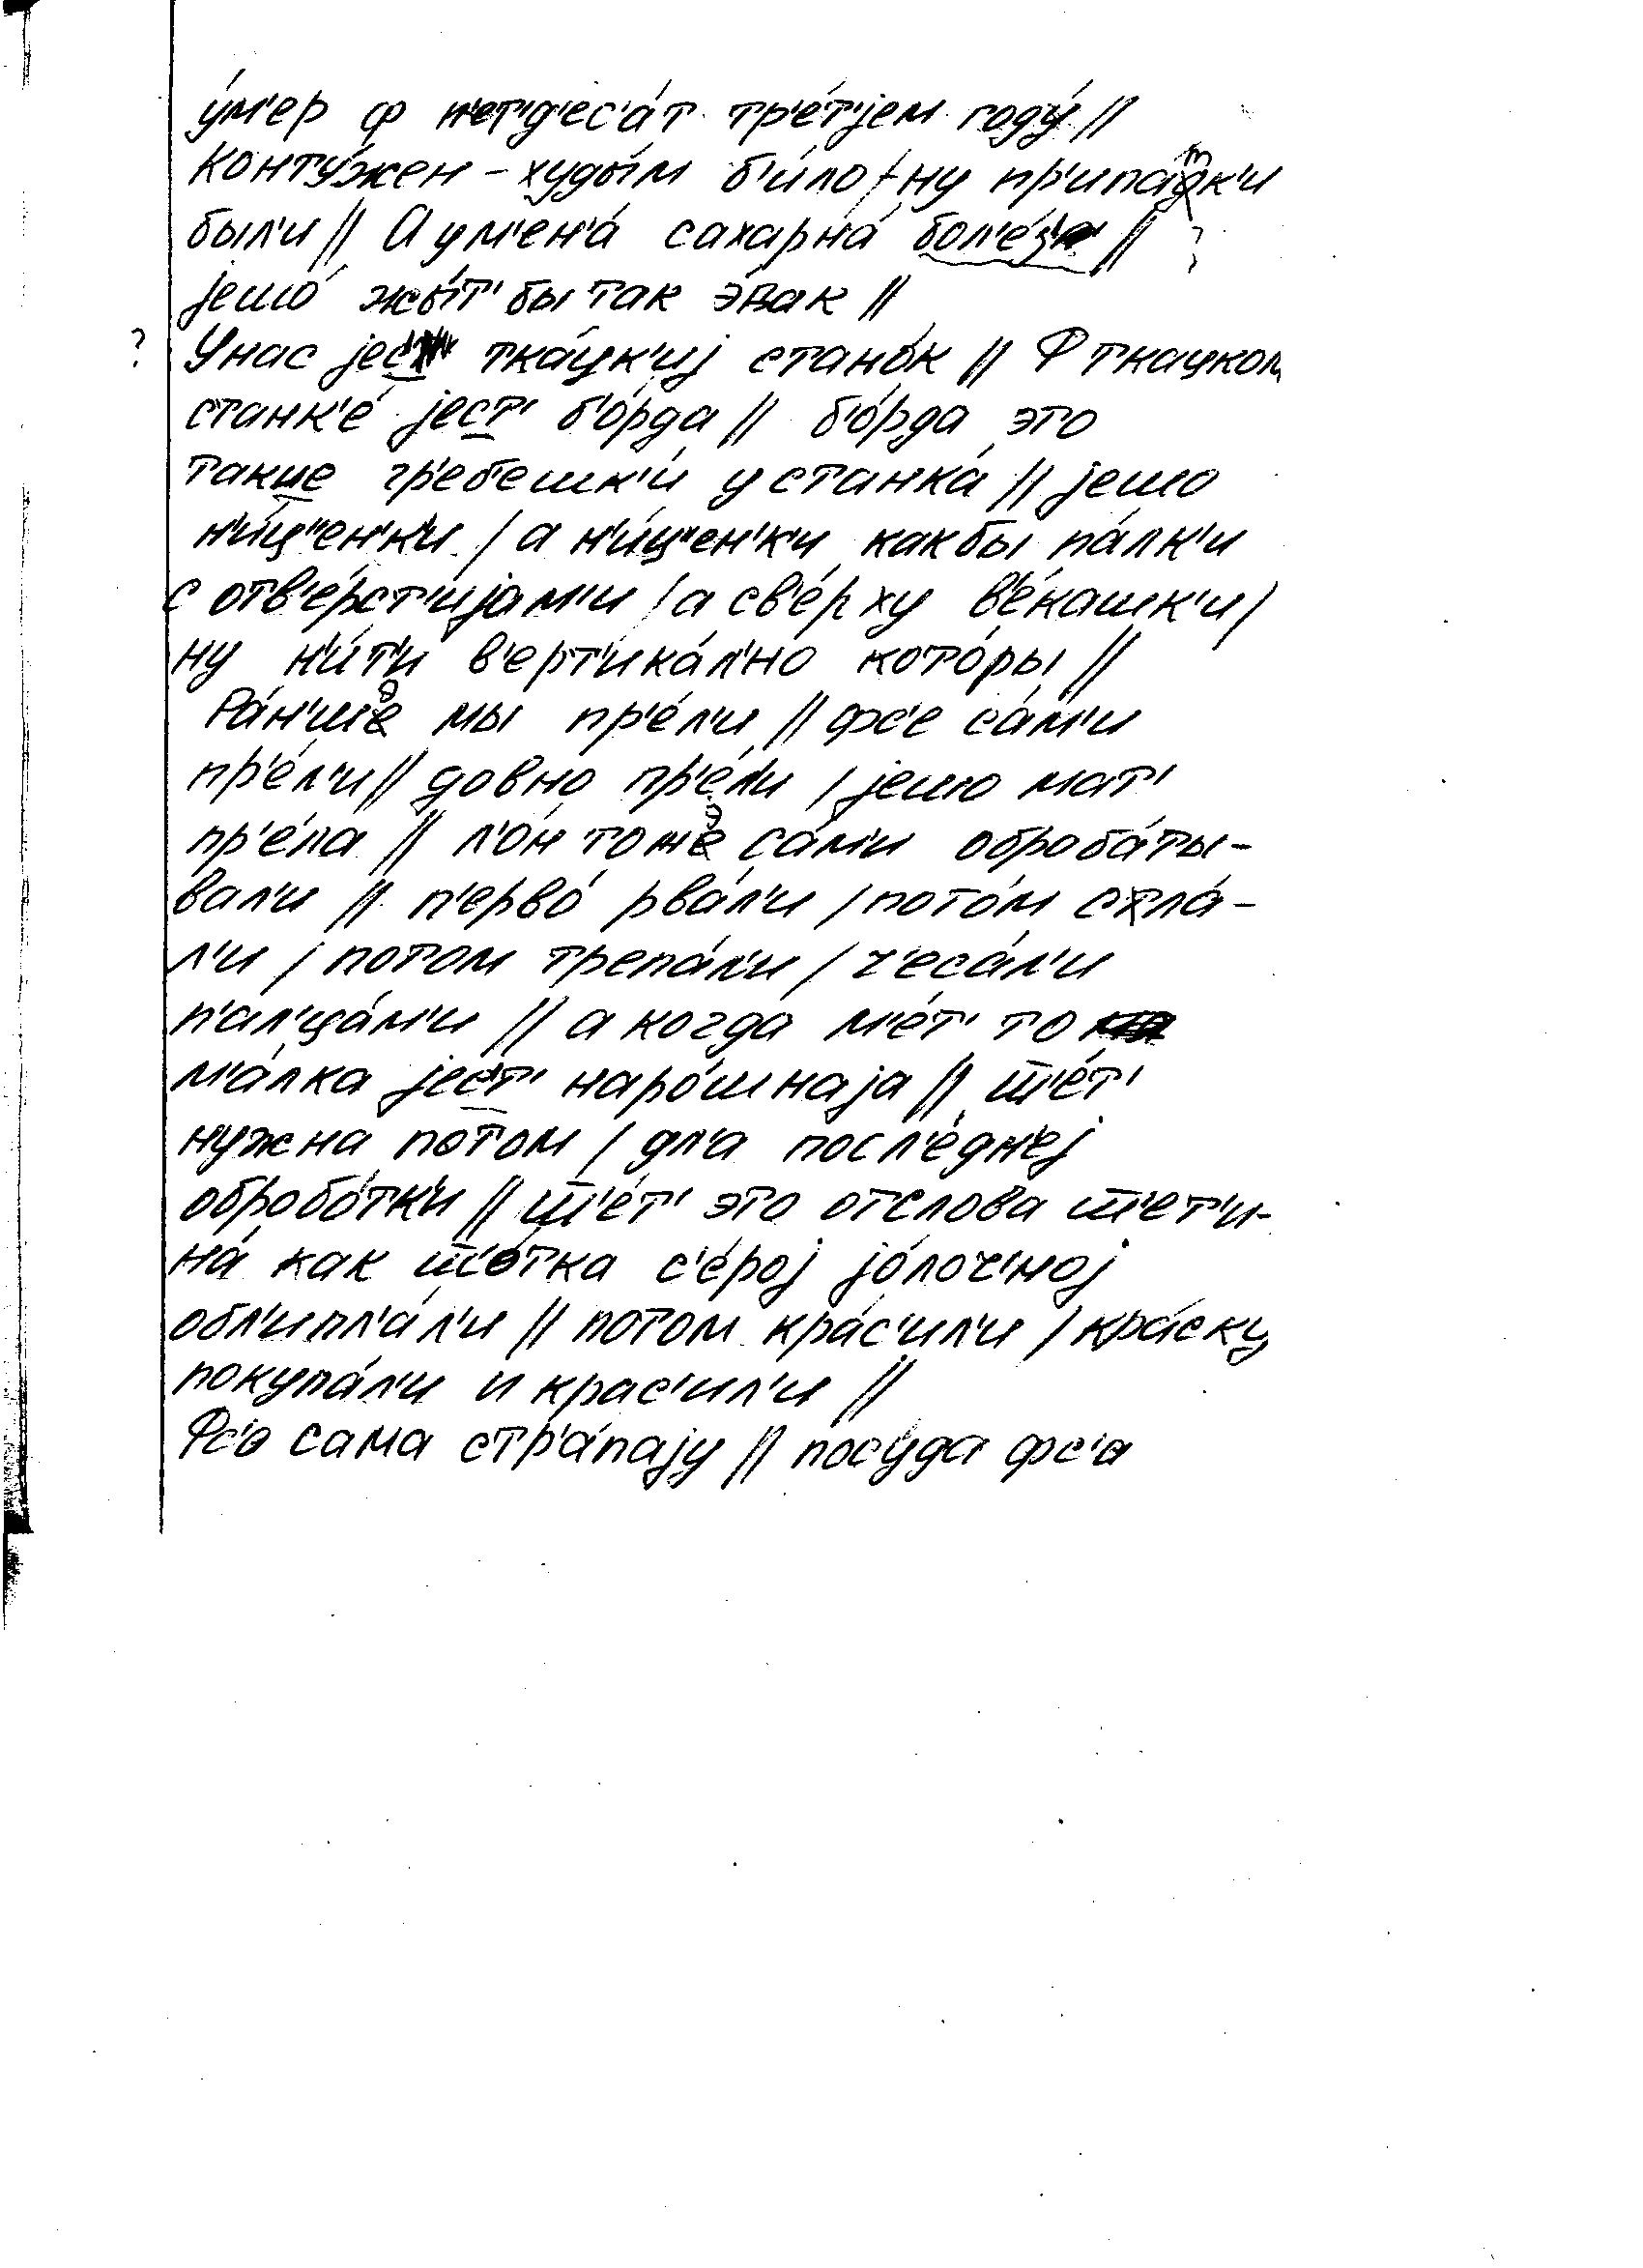 у́м'ер ф п'ет'д'ес'а́т тр'е́т'jем году́ //
конту́жен – худы́м б'и́ло / ну пр'ипа́тк'и
был'и // А у м'ен'а́ сахарна́ бол'е́з' // ?
jешо́ жы́т' бы так э́вак //
? У нас jес'т' тка́цк'иj стано́к // Ф ткацком
станк'е́ jест' б'о́рда // б'о́рда это
такие гр'еб'ешк'и́ у станка́ // jешо
н'и́ц'ен'к'и / а н'и́ц'ен'к'и как бы па́лк'и
с отв'е́рст'иjам'и / а св'е́рху в'е́кошк'и /
ну н'и́т'и в'ерт'ика́л'но кото́ры //
Ра́н'шэ мы пр'е́л'и // фс'е са́м'и
пр'е́л'и // довно пр'е́л'и / jешо мат'
пр'е́ла // л'о́н тожэ са́м'и обробо́ты-
вал'и // п'ерво́ рва́л'и / пото́м стла́-
л'и / потом трепа́л'и / ч'еса́л'и
п'ал'ца́м'и // а когда м'е́т' то
м'а́лка jест' наро́шнаjа // ш'е́т'
нужна потом / дл'а посл'е́дн'еj
обробо́тк'и // ш'е́т' это от слова ш'ет'и-
на́ как ш'о́тка с'е́роj jо́лоч'ноj
обл'ипл'а́л'и // потом кра́с'ил'и / кра́ску
покупа́л'и и крас'ил'и //
Фс'о сама стр'а́паjу // посу́да фс'а